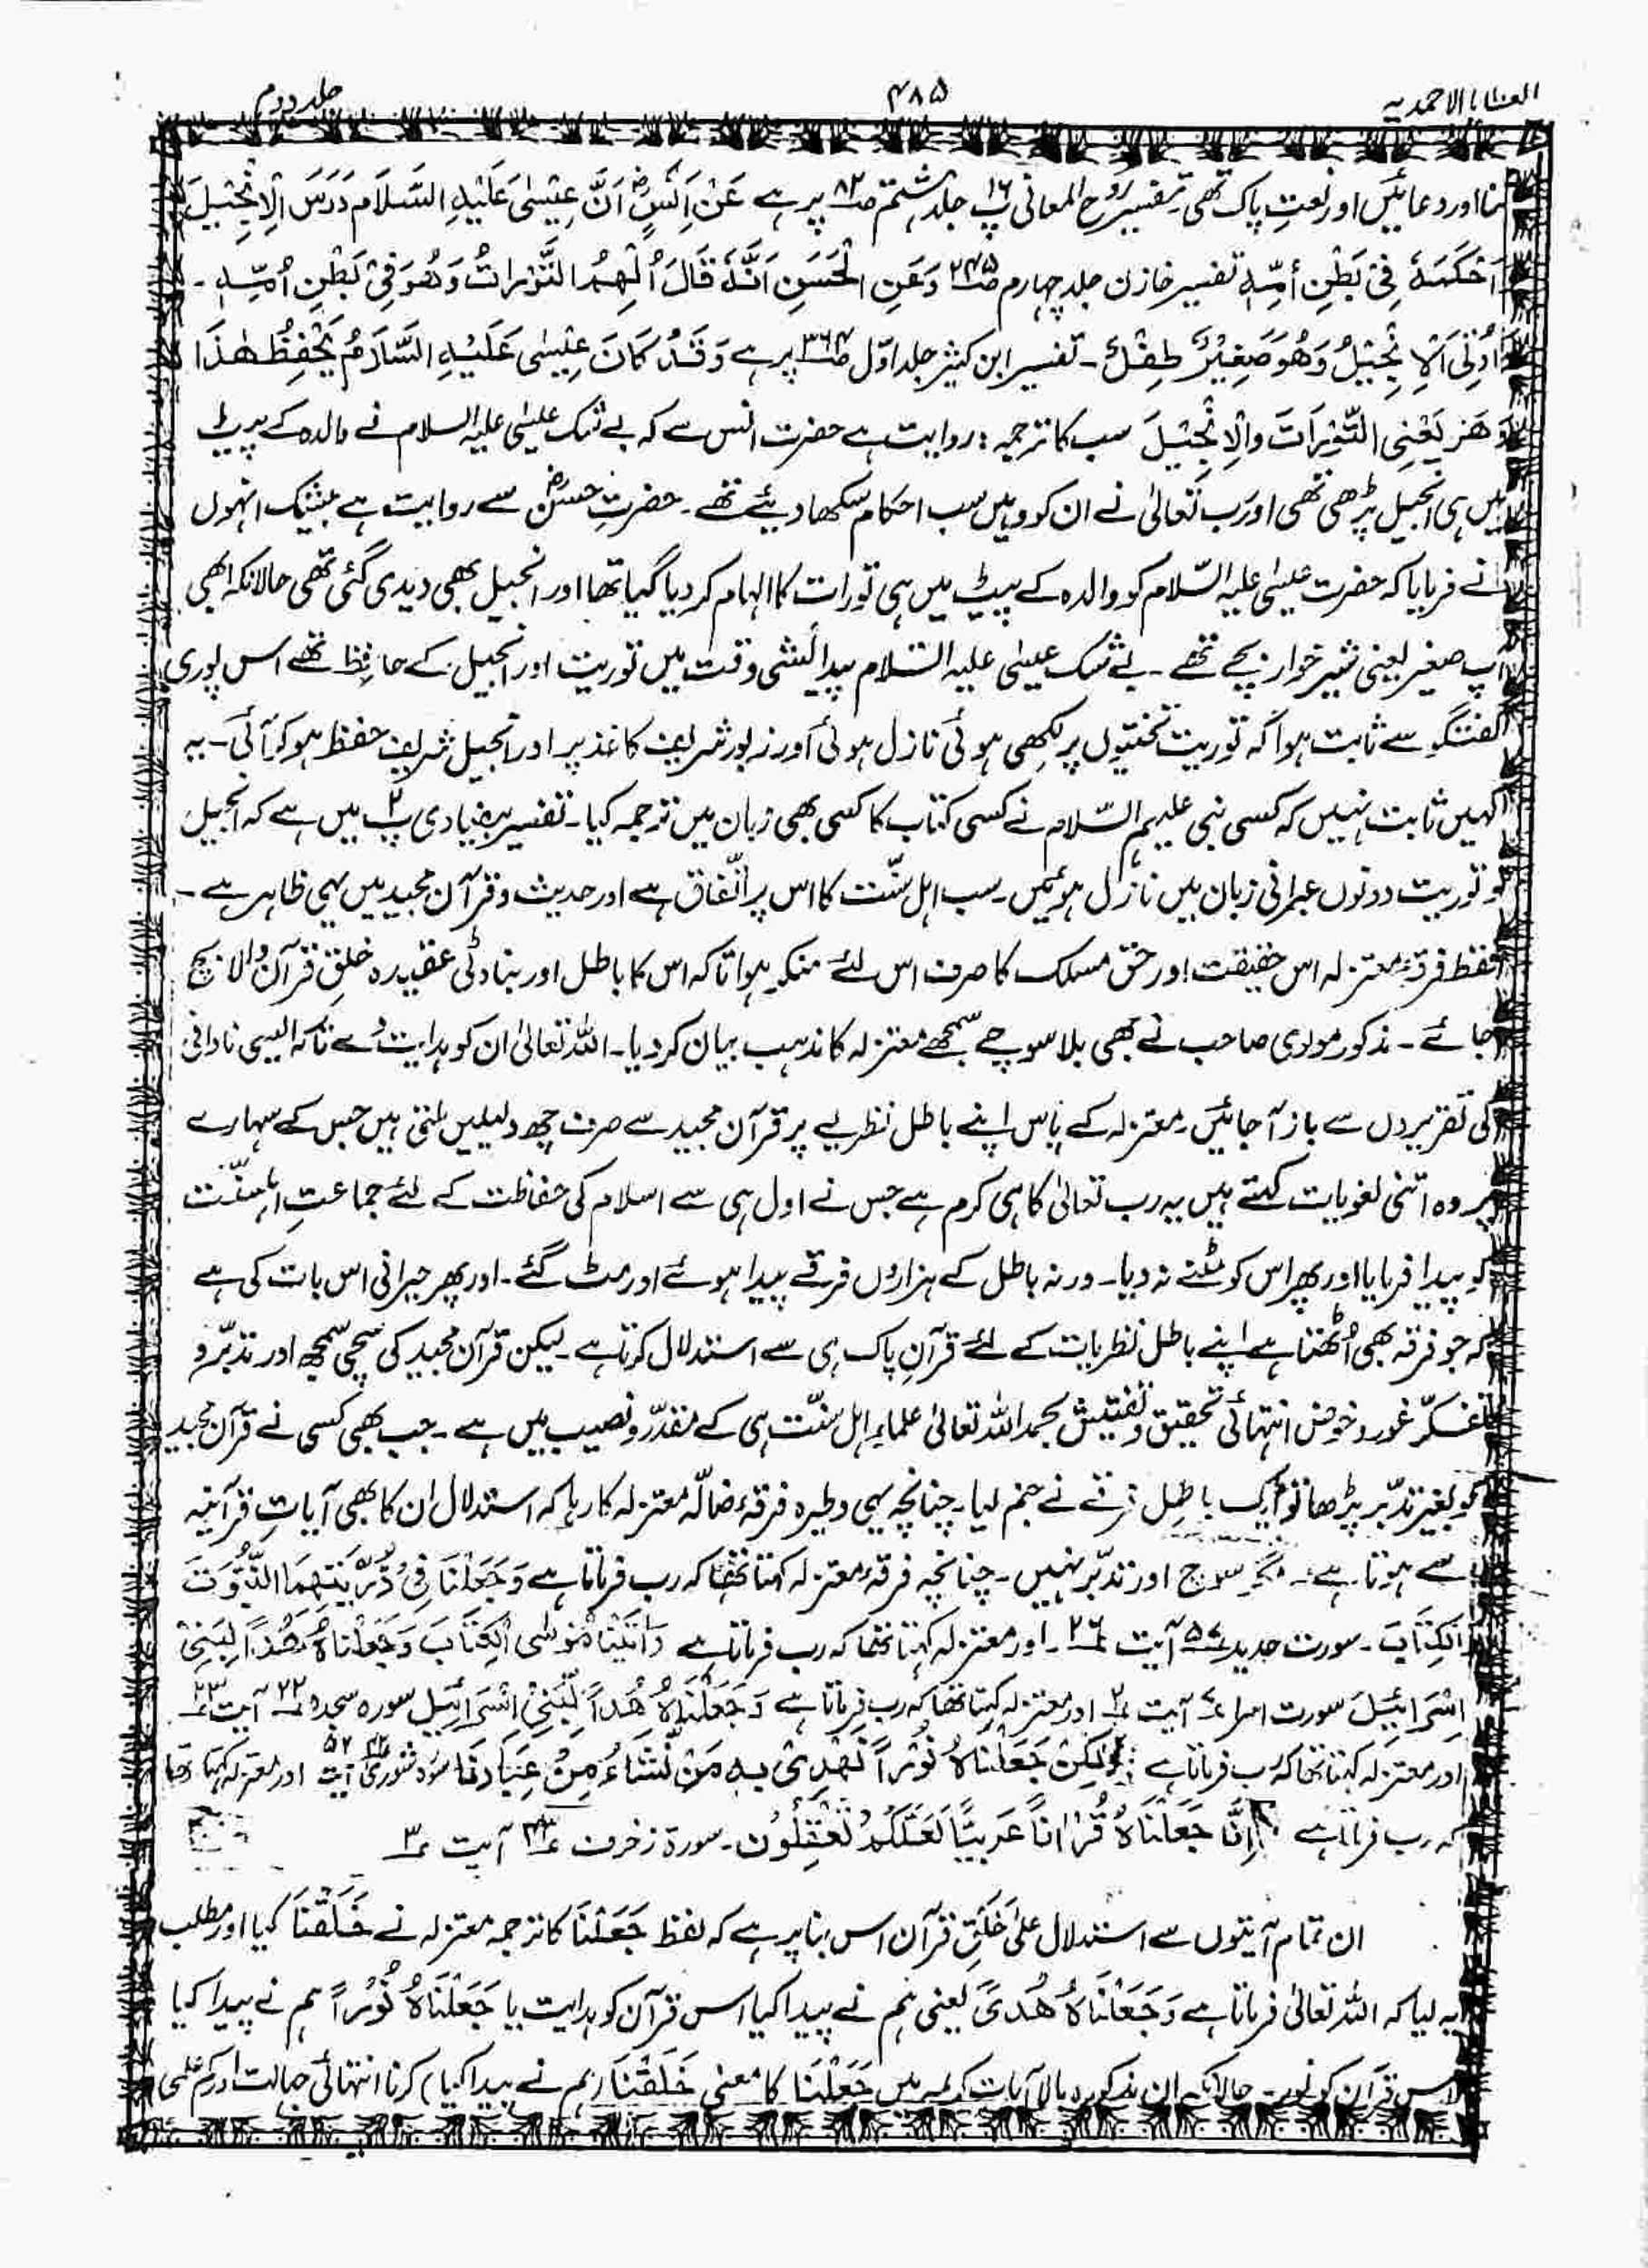 العطایا الاحمدیہ ۴۸۵ جلد دوم
ثنا اور دعائیں اور نعتِ پاک تھی۔ تفسیر روح المعانی پ ۱۶ جلد ہشتم صـ ۸۲ پر ہے عَنْ اَنَسٍؓ اَنَّ عِیْسٰی عَلَیْہِ السَّلَام دَرَسَ الْاِنْجِیْلَ
وَاَحْکَمَہٗ فِیْ بَطْنِ اُمِّہٖ تفسیر خازن جلد چہارم صـ ۲۴۵ وَعَنِ الْحَسَنِ اَنَّہٗ قَالَ اُلْہِمَ التَّوْرَاتُ وَھُوَ فِیْ بَطْنِ اُمِّہٖ ۔
وَاُوْتِیَ الْاِنْجِیْلُ وَھُوَ صَغِیْرٌ طِفْلٌ ۔ تفسیر ابن کثیر جلد اوّل صـ ۳۶۴ پر ہے وَقَدْ کَانَ عِیْسٰی عَلَیْہِ السَّلَامُ یَحْفِظُ ھٰذَا
وَھٰذَ یَعْنِی التَّوْرَاتَ وَالْاِنْجِیْلَ سب کا ترجمہ : روایت ہے حضرت انس سے کہ بے شک عیسٰی علیہ السلام نے والدہ کے پیٹ
میں ہی انجیل پڑھی تھی اور رَب تعالیٰ نے ان کو وہیں سب احکام سکھا دیئے تھے ۔ حضرتِ حسنؓ سے روایت ہے بیشک انہوں
نے فرمایا کہ حضرت عیسٰی علیہ السّلام کو والدہ کے پیٹ میں ہی تورات کا الہام کر دیا گیا تھا اور انجیل بھی دیدی گئی تھی حالانکہ ابھی
آپ صغیر یعنی شیر خوار بچے تھے ۔ بے شک عیسٰی علیہ السّلام پیدائشی وقت میں توریت اور انجیل کے حافِظ تھے اس پوری
گفتگو سے ثابت ہوا کہ توریت تختیوں پر لکھی ہوئی نازل ہوئی اور زبور شریف کاغذ پر اور انجیل شریف حفظ ہو کر آئی ۔ یہ
کہیں ثابت نہیں کہ کسی نبی علیہم السّلام نے کسی کتاب کا کسی بھی زبان میں ترجمہ کیا ۔ تفسیر بیضاوی پ ۲ میں ہے کہ انجیل
و توریت دونوں عبرانی زبان میں نازل ہوئیں ۔ سب اہل سنّت کا اس پر اتّفاق ہے اور حدیث و قرآن مجید میں یہی ظاہر ہے ۔
فقط فرقۂ معتزلہ اس حقیقت اور حق مسلک کا صرف اس لئے منکر ہوا تاکہ اس کا باطل اور بناوٹی عقیدہ خلقِ قرآن والا بچ
جائے ۔ مذکور مولوی صاحب نے بھی بلا سوچے سمجھے معتزلہ کا مذہب بیان کر دیا ۔ اللہ تعالیٰ ان کو ہدایت دے تاکہ ایسی نادانی
کی تقریروں سے باز آ جائیں ۔ معتزلہ کے پاس اپنے باطل نظریے پر قرآن مجید سے صرف چھ دلیلیں ملتی ہیں جس کے سہارے
پر وہ اتنی لغویات کہتے ہیں یہ رب تعالیٰ کا ہی کرم ہے جس نے اول ہی سے اسلام کی حفاظت کے لئے جماعتِ اہلسنّت
کو پیدا فرمایا اور پھر اس کو مٹنے نہ دیا ۔ ورنہ باطل کے ہزاروں فرقے پیدا ہوئے اور مٹ گئے ۔ اور پھر حیرانی اس بات کی ہے
کہ جو فرقہ بھی اُٹھتا ہے اپنے باطل نظریات کے لئے قرآنِ پاک ہی سے استدلال کرتا ہے ۔ لیکن قرآن مجید کی سچی سمجھ اور تدبّر و
تفکّر غور و خوض انتہائی تحقیق و تفتیش بحمد اللہ تعالیٰ علماءِ اہل سنّت ہی کے مقدّر و نصیب میں ہے ۔ جب بھی کسی نے قرآن مجید
کو بغیر تدبّر پڑھا تو ایک باطِل فرقے نے جنم لیا ۔ چنانچہ یہی وطیرہ فرقۂ ضالّہ معتزلہ کا رہا کہ استدلال ان کا بھی آیاتِ قرآنیہ
سے ہوتا ہے ۔ مگر سوچ اور تدبّر نہیں ۔ چنانچہ فرقۂ معتزلہ کہتا تھا کہ رب فرماتا ہے وَجَعَلْنَا فِیْ ذُرِّیَّتِهِمَا النُّبُوَّتَ
وَالْکِتَابَ ۔ سورت حدید ۵۷ آیت ۲۶ ۔ اور معتزلہ کہتا تھا کہ رب فرماتا ہے وَاٰتَیْنَا مُوْسَی الْکِتَابَ وَجَعَلْنَاہُ ھُدًا لِّبَنِیْ
اِسْرَائِیْلَ سورت اسرا آیت ۲ اور معتزلہ کہتا تھا کہ رب فرماتا ہے وَجَعَلْنٰہُ ھُدًا لِّبَنِیْ اِسْرَائِیْل سورہ سجدہ ۲۲ آیت ۲۳
اور معتزلہ کہتا تھا کہ رب فرماتا ہے وَلٰکِنْ جَعَلْنَاہُ نُوْرًا نَّهْدِیْ بِہٖ مَنْ نَّشَاءُ مِنْ عِبَادِنَا سورۃ شوریٰ ۴۲ آیت ۵۲ اور معتزلہ کہتا تھا
کہ رب فرماتا ہے اِنَّا جَعَلْنَاہُ قُرْاٰنًا عَرَبِیًّا لَعَلَّکُمْ تَعْقِلُوْن ۔ سورۃ زخرف ۴۳ آیت ۳
ان تمام آیتوں سے استدلال علیٰ خَلَقِ قرآن اس بنا پر ہے کہ لفظ جَعَلْنَا کا ترجمہ معتزلہ نے خَلَقْنَا کیا اور مطلب
یہ لیا کہ اللہ تعالیٰ فرماتا ہے وَجَعَلْنَاہُ ھُدًی یعنی ہم نے پیدا کیا اس قرآن کو ہدایت یا جَعَلْنَاہُ نُوْرًا ہم نے پیدا کیا
اس قرآن کو نور ۔ حالانکہ ان مذکورہ بالا آیات کریمہ میں جَعَلْنَا کا معنی خَلَقْنَا (ہم نے پیدا کیا) کرنا انتہائی جہالت اور کم علمی